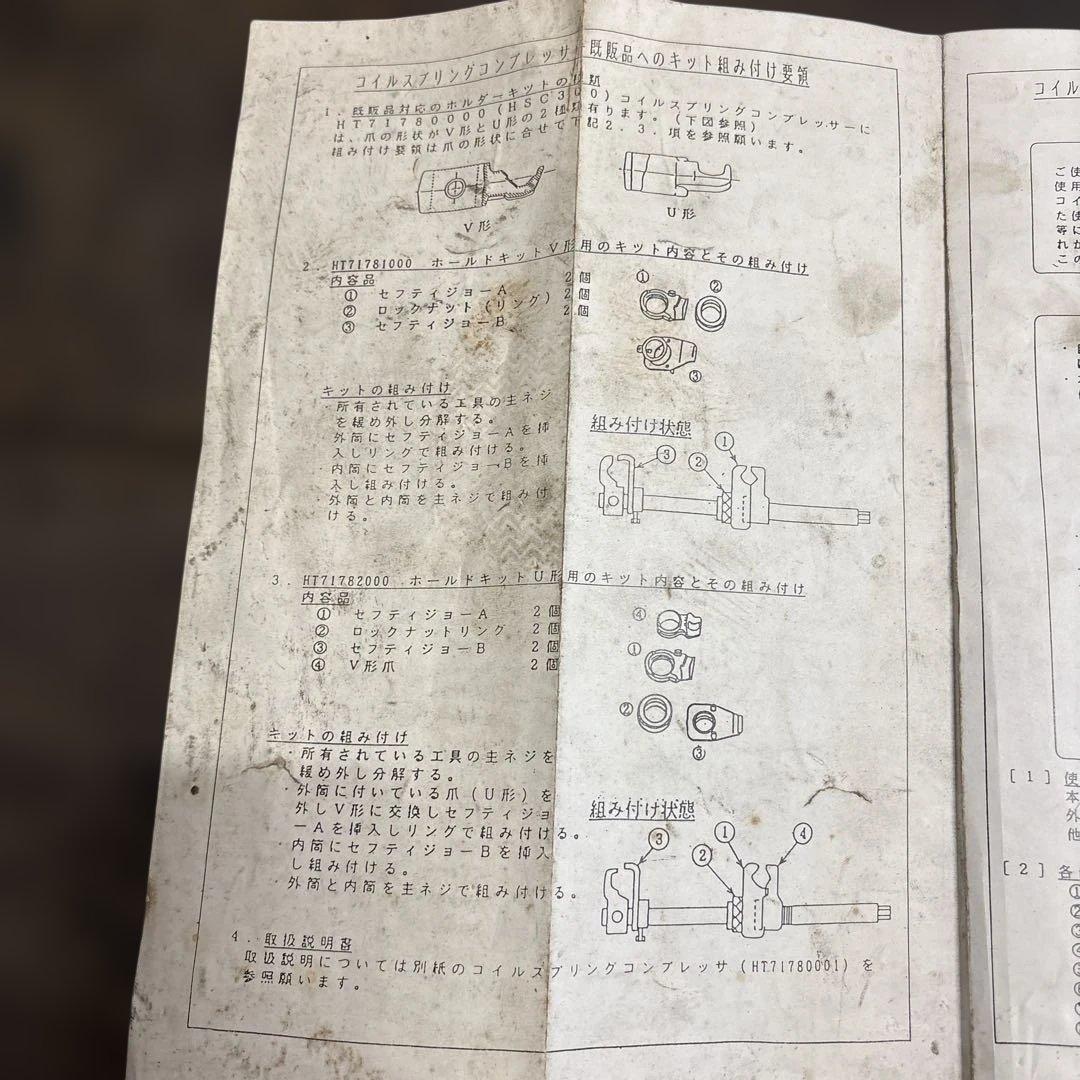 コイルスプリングコンプレッサー既販品へのキット組み付け要領
1. 既販品対応のホルダーキットの種類
HT71780000(HSC300)コイルスプリングコンプレッサーに
は、爪の形状がV形とU形の2種類有ります。(下図参照)
組み付け要領は爪の形状に合せて下記2.3.項を参照願います。
V形
U形
2. HT71781000 ホールドキットV形用のキット内容とその組み付け
内容品
① セフティジョーA 2個
② ロックナット(リング) 2個
③ セフティジョーB 2個
①
②
③
キットの組み付け
・所有されている工具の主ネジ
を緩め外し分解する。
・外筒にセフティジョーAを挿
入しリングで組み付ける。
・内筒にセフティジョーBを挿
入し組み付ける。
・外筒と内筒を主ネジで組み付
ける。
組み付け状態
①
②
③
3. HT71782000 ホールドキットU形用のキット内容とその組み付け
内容品
① セフティジョーA 2個
② ロックナットリング 2個
③ セフティジョーB 2個
④ V形爪 2個
④
①
②
③
キットの組み付け
・所有されている工具の主ネジを
緩め外し分解する。
・外筒に付いている爪(U形)を
外しV形に交換しセフティジョ
ーAを挿入しリングで組み付ける。
・内筒にセフティジョーBを挿入
し組み付ける。
・外筒と内筒を主ネジで組み付ける。
組み付け状態
③
①
②
④
4. 取扱説明書
取扱説明については別紙のコイルスプリングコンプレッサ(HT71780001)を
参照願います。
コイル
ご使
使用
コイ
た使
等に
れが
この
[1] 使
本
外
他
[2] 各
①
②
③
④
⑤